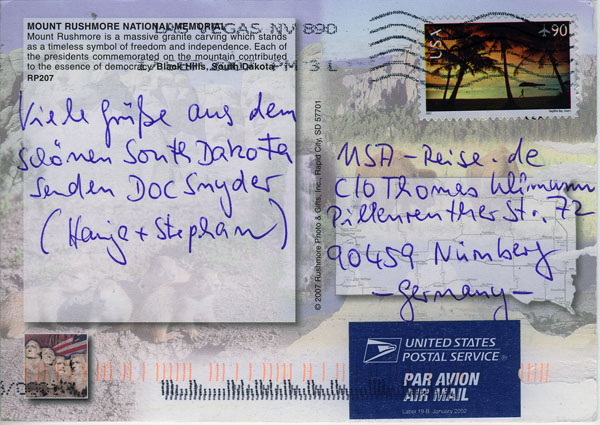 MOUNT RUSHMORE NATIONAL MEMORIAL
Mount Rushmore is a massive granite carving which stands
as a timeless symbol of freedom and independence. Each of
the presidents commemorated on the mountain contributed
to the essence of democracy. Black Hills, South Dakota
RP207
LAS VEGAS NV 890
Viele Grüße aus dem
schönen South Dakota
senden DOC Snyder
(Hanja + Stephan)
© 2007 Rushmore Photo & Gifts, Inc., Rapid City, SD 57701
USA
90
USA-Reise.de
C/O Thomas
Pillenreuther Str. 72
90459 Nürnberg
-Germany-
UNITED STATES
POSTAL SERVICE®
PAR AVION
AIR MAIL
Label 19-B, January 2002